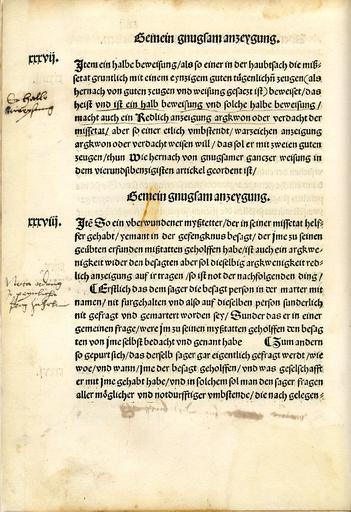 Gemein gnugsam anzeygung.
xxxvij.
Jtem ein halbe beweisung/als so einer in der haubtsach die miß⸗
setat gruntlich mit einem eynzigem guten tügenlichñ zeugen (als
hernach von guten zeugen vnd weisung gesaczt ist) beweiset/das
heist vnd ist ein halb beweisung vnd solche halbe beweisung/
macht auch ein Redlich anzeigung argkwon oder verdacht der
missetat/ aber so einer etlich vmbstendt/warzeichen anzeigung
argkwon oder verdacht weisen will/ das sol er mit zweien guten
zeugen/thun Wie hernach von gnugsamer ganczer weisung in
dem vierundsibenzigisten artickel geordent ist/
Gemein gnugsam anzeygung.
xxxviij.
Jtē So ein vberwundener mysztetter/der in seiner missetat helf⸗
fer gehabt/yemant in der gefengknus besagt/der jme zu seinen
geübten erfunden mißtatten geholffen habe/ist auch ein argkwe⸗
nigkeit wider den besagten aber sol dieselbig argkwenigkeit red⸗
lich anzeigung auf ir tragen/so ist not der nachfolgenden ding/
Erstlich das dem sager die besagt person in der marter mit
namen/nit furgehalten vnd also auf dieselben person sunderlich
nit gefragt vnd gemartert worden sey/Sunder das er in einer
gemeinen frage/were jm zu seinen myßtatten geholffen den besag
ten von jme selbst bedacht vnd genant habe Zum andern
so gepurt sich/das derselb sager gar eigentlich gefragt werdt/wie
woe/vnd wann/jme der besagt geholffen/vnd was geselschafft
er mit jme gehabt habe/vnd in solchem sol man den sager fragen
aller möglicher vnd notdurfftiger vmbstende/die nach gelegen⸗